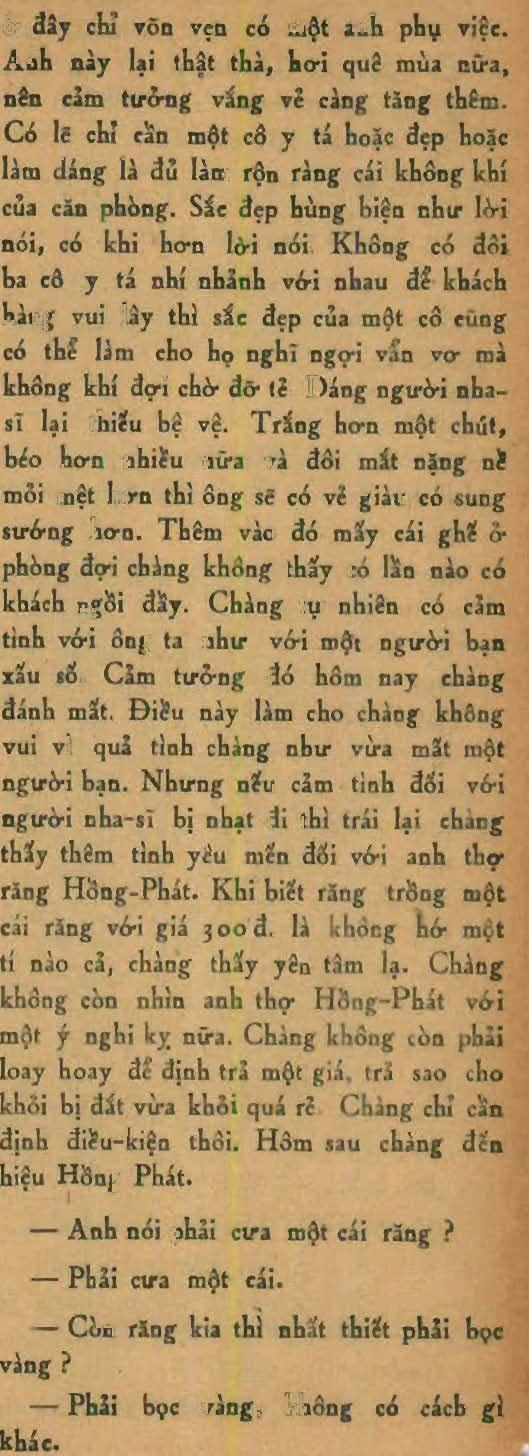 Ở đây chỉ võn vẹn có một anh phụ việc.
Anh này lại thật thà, hơi quê mùa nữa,
nên cảm tưởng vắng vẻ càng tăng thêm.
Có lẽ chỉ cần một cô y tá hoặc đẹp hoặc
làm dáng là đủ làm rộn ràng cái không khí
của căn phòng. Sắc đẹp hùng biện như lời
nói, có khi hơn lời nói. Không có đôi
ba cô y tá nhí nhảnh với nhau để khách
hàng vui lây thì sắc đẹp của một cô cũng
có thể làm cho họ nghĩ ngợi vẩn vơ mà
không khí đợi chờ đỡ tẻ. Dáng người nha-
sĩ lại thiếu bệ vệ. Trắng hơn một chút,
béo hơn nhiều nữa và đôi mắt nặng nề
mỏi mệt hơn thì ông sẽ có vẻ giàu có sung
sướng hơn. Thêm vào đó mấy cái ghế ở
phòng đợi chàng không thấy có lần nào có
khách ngồi đầy. Chàng tự nhiên có cảm
tình với ông ta như với một người bạn
xấu số. Cảm tưởng đó hôm nay chàng
đánh mất. Điều này làm cho chàng không
vui vì quả tình chàng như vừa mất một
người bạn. Nhưng nếu cảm tình đối với
người nha-sĩ bị nhạt đi thì trái lại chàng
thấy thêm tình yêu mến đối với anh thợ
răng Hồng-Phát. Khi biết rằng trồng một
cái răng với giá 300đ. là không hớ một
tí nào cả, chàng thấy yên tâm lạ. Chàng
không còn nhìn anh thợ Hồng-Phát với
một ý nghi kỵ nữa. Chàng không còn phải
loay hoay để định trả một giá, trả sao cho
khỏi bị đắt vừa khỏi quá rẻ. Chàng chỉ cần
định điều-kiện thôi. Hôm sau chàng đến
hiệu Hồng Phát.
— Anh nói phải cưa một cái răng ?
— Phải cưa một cái.
— Còn răng kia thì nhất thiết phải bọc
vàng ?
— Phải bọc vàng, không có cách gì
khác.